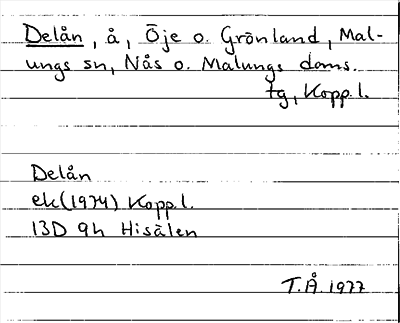 Delån, å, Öje o. Grönland, Mal-
ungs sn, Nås o. Malungs doms.
tg, Kopp.l.
Delån
ek(1974) Kopp.l.
13D 9h Hisälen
T.Å. 1977